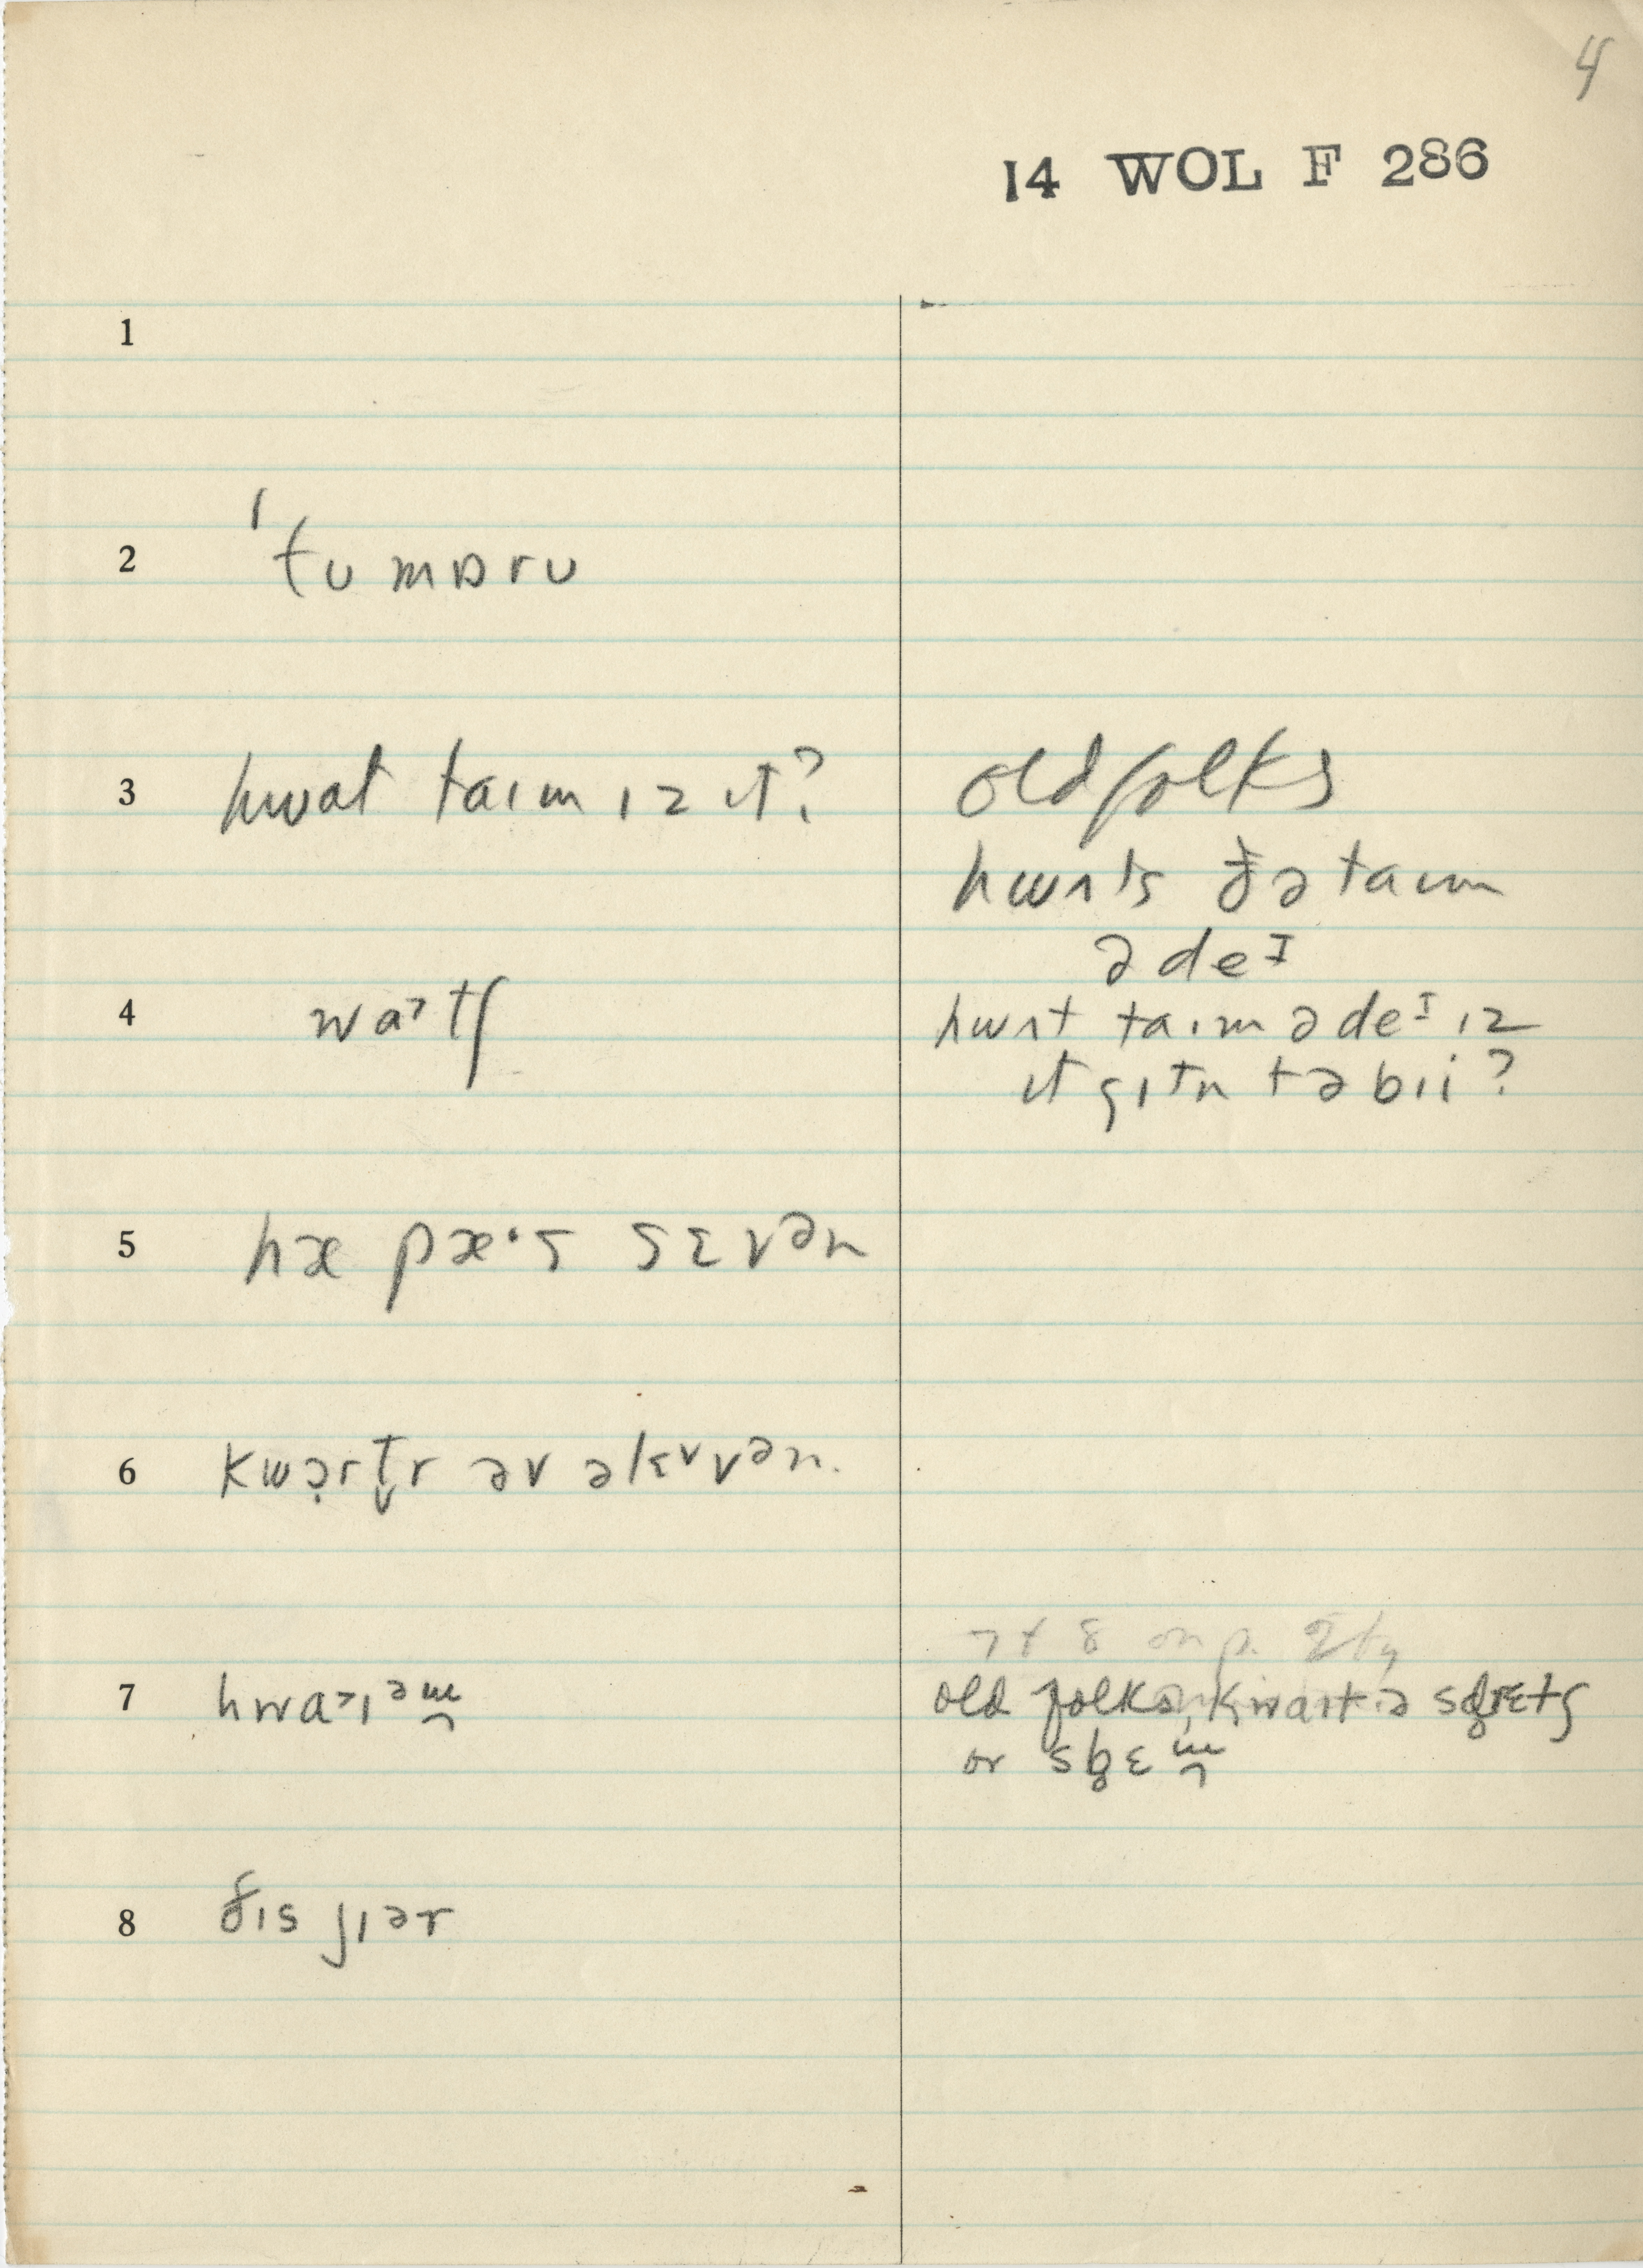 4
14 WOL F 286
1
2 ˈtʊ mɒrʊ
3 hwat taɪm ɪz ɪt?
old folks
hwʌts ðə taɪm
ə deᴵ
4 waɜtʃ
hwʌt taɪm ə deᴵ ɪz
ɪt gɪtn tə bɪi?
5 hæ pæ·s sɛvᵊn
6 kwɔ̣rt̬r əv əlɛᵛvᵊn.
7 hwaɜɪᵊɯ
7 & 8 on p.
old folks, kwaɪt ə
or
8 ðɪs jɪər